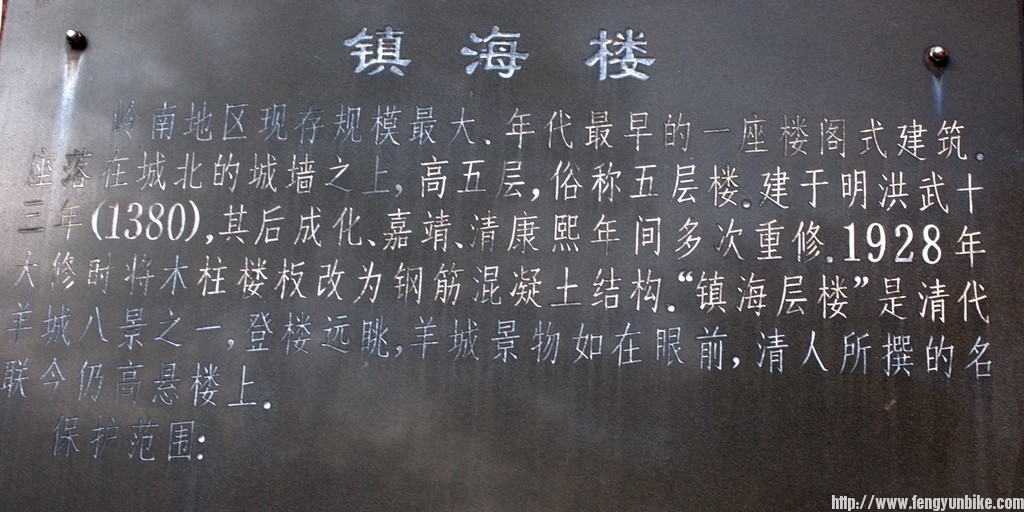 镇海楼
岭南地区现存规模最大、年代最早的一座楼阁式建筑.
座落在城北的城墙之上,高五层,俗称五层楼.建于明洪武十
三年(1380),其后成化、嘉靖、清康熙年间多次重修.1928年
大修时将木柱楼板改为钢筋混凝土结构.“镇海层楼”是清代
羊城八景之一,登楼远眺,羊城景物如在眼前,清人所撰的名
联今仍高悬楼上.
保护范围:
http://www.fengyunbike.com